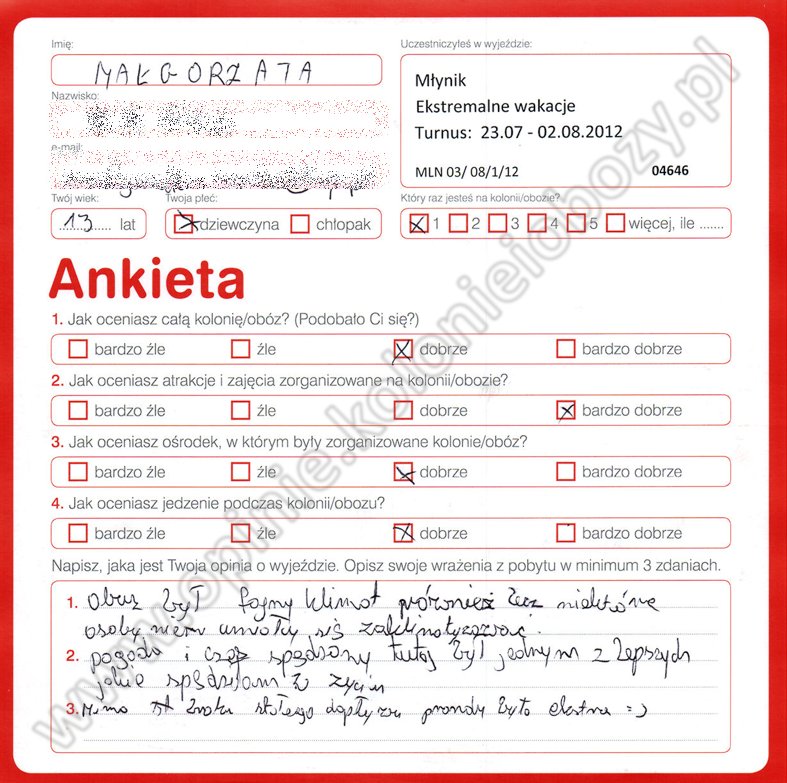 Imię:
MAŁGORZATA
Uczestniczyłeś w wyjeździe:
Młynik
Ekstremalne wakacje
Turnus: 23.07 - 02.08.2012
MLN 03/ 08/1/12 04646
Nazwisko:
e-mail:
Twój wiek:
13 lat
Twoja płeć:
dziewczyna chłopak
Który raz jesteś na kolonii/obozie?
1 2 3 4 5 więcej, ile .......
Ankieta
1. Jak oceniasz całą kolonię/obóz? (Podobało Ci się?)
bardzo źle źle dobrze bardzo dobrze
2. Jak oceniasz atrakcje i zajęcia zorganizowane na kolonii/obozie?
bardzo źle źle dobrze bardzo dobrze
3. Jak oceniasz ośrodek, w którym były zorganizowane kolonie/obóz?
bardzo źle źle dobrze bardzo dobrze
4. Jak oceniasz jedzenie podczas kolonii/obozu?
bardzo źle źle dobrze bardzo dobrze
Napisz, jaka jest Twoja opinia o wyjeździe. Opisz swoje wrażenia z pobytu w minimum 3 zdaniach.
1. Obuz był fajny klimat również lecz niektóre
osoby umiały się
2. pogoda i czas spędzony tutaj był jednym z lepszych
jakie spędziłam w życiu
3. Mimo braku stałego dopływu prondu było ekstra =)
www.opinie.kolonieiobozy.pl